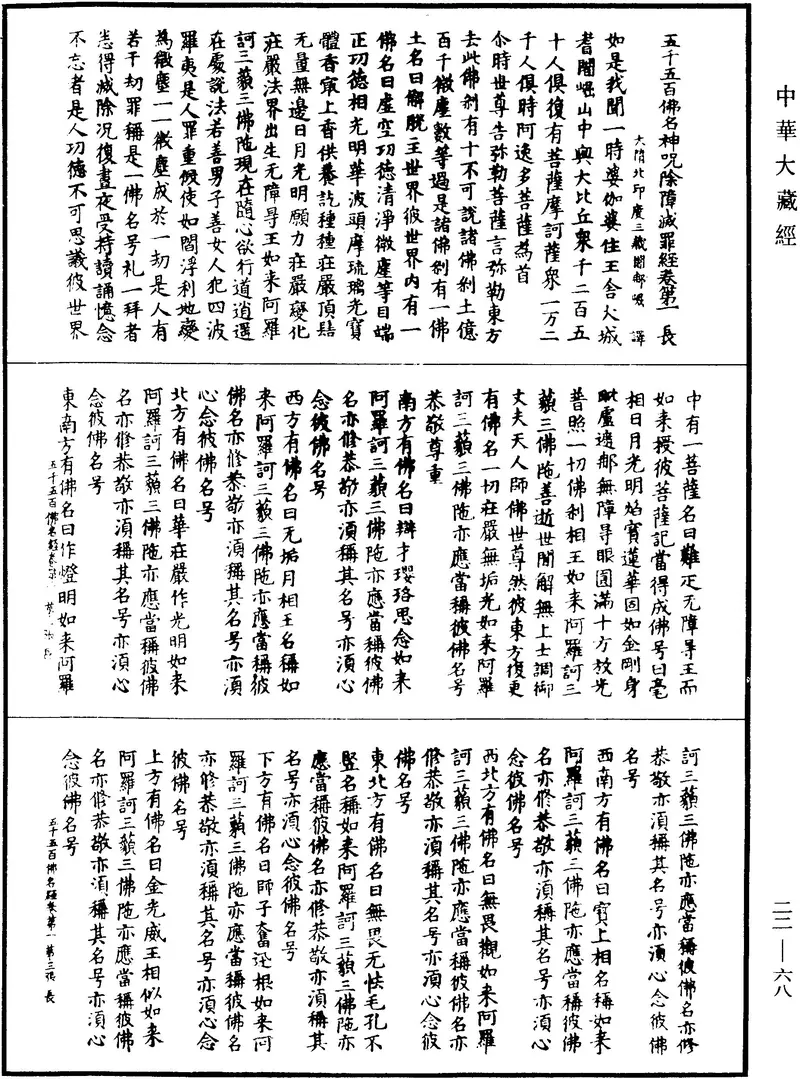 中華大藏經
五千五百佛名神呪除障滅罪經卷第一 長
大隋北印度三藏闍那崛 譯
如是我聞一時婆伽婆住王舍大城
耆闍崛山中與大比丘衆千二百五
十人俱復有菩薩摩訶薩衆一万二
千人俱時阿逸多菩薩為首
尒時世尊告弥勒菩薩言弥勒東方
去此佛刹有十不可說諸佛刹土億
百千微塵數等過是諸佛刹有一佛
土名曰解脫主世界彼世界内有一
佛名曰虛空功德清淨微塵等目端
正功德相光明華波頭摩琉璃光寶
體香㝡上香供養訖種種莊嚴頂髻
无量無邊日月光明願力莊嚴變化
莊嚴法界出生无障㝵王如来阿羅
訶三藐三佛陁現在隨心欲行道逍遥
在處說法若善男子善女人犯四波
羅夷是人罪重假使如閻浮利地變
為微塵一一微塵成於一劫是人有
若干劫罪稱是一佛名号礼一拜者
悉得滅除况復晝夜受持讀誦憶念
不忘者是人功德不可思議彼世界
中有一菩薩名曰難疋无障㝵王而
如来授彼菩薩記當得成佛号曰毫
相日月光明焰寶蓮華固如金剛身
毗盧遮那無障㝵眼圓滿十方放光
普照一切佛刹相王如来阿羅訶三
藐三佛陁善逝世間解無上士調御
丈夫天人師佛世尊然彼東方復更
有佛名一切莊嚴無垢光如来阿羅
訶三藐三佛陁亦應當稱彼佛名号
恭敬尊重
南方有佛名曰辯才瓔珞思念如来
阿羅訶三藐三佛陁亦應當稱彼佛
名亦修恭敬亦湏稱其名号亦湏心
念彼佛名号
西方有佛名曰无垢月相王名稱如
来阿羅訶三藐三佛陁亦應當稱彼
佛名亦修恭敬亦湏稱其名号亦湏
心念彼佛名号
北方有佛名曰華莊嚴作光明如来
阿羅訶三藐三佛陁亦應當稱彼佛
名亦修恭敬亦湏稱其名号亦湏心
念彼佛名号
五千五百佛名經卷第一
東南方有佛名曰作燈明如来阿羅
訶三藐三佛陁亦應當稱彼佛名亦修
恭敬亦湏稱其名号亦湏心念彼佛
名号
西南方有佛名曰寶上相名稱如来
阿羅訶三藐三佛陁亦應當稱彼佛
名亦修恭敬亦湏稱其名号亦湏心
念彼佛名号
西北方有佛名曰無畏觀如来阿羅
訶三藐三佛陁亦應當稱彼佛名亦
修恭敬亦湏稱其名号亦湏心念彼
佛名号
東北方有佛名曰無畏无怯毛孔不
竪名稱如来阿羅訶三藐三佛陁亦
應當稱彼佛名亦修恭敬亦湏稱其
名号亦湏心念彼佛名号
下方有佛名曰師子奮迅根如来阿
羅訶三藐三佛陁亦應當稱彼佛名
亦修恭敬亦湏稱其名号亦湏心念
彼佛名号
上方有佛名曰金光威王相似如来
阿羅訶三藐三佛陁亦應當稱彼佛
名亦修恭敬亦湏稱其名号亦湏心
念彼佛名号
五千五百佛名經卷第一 第三張 長
二二—六八